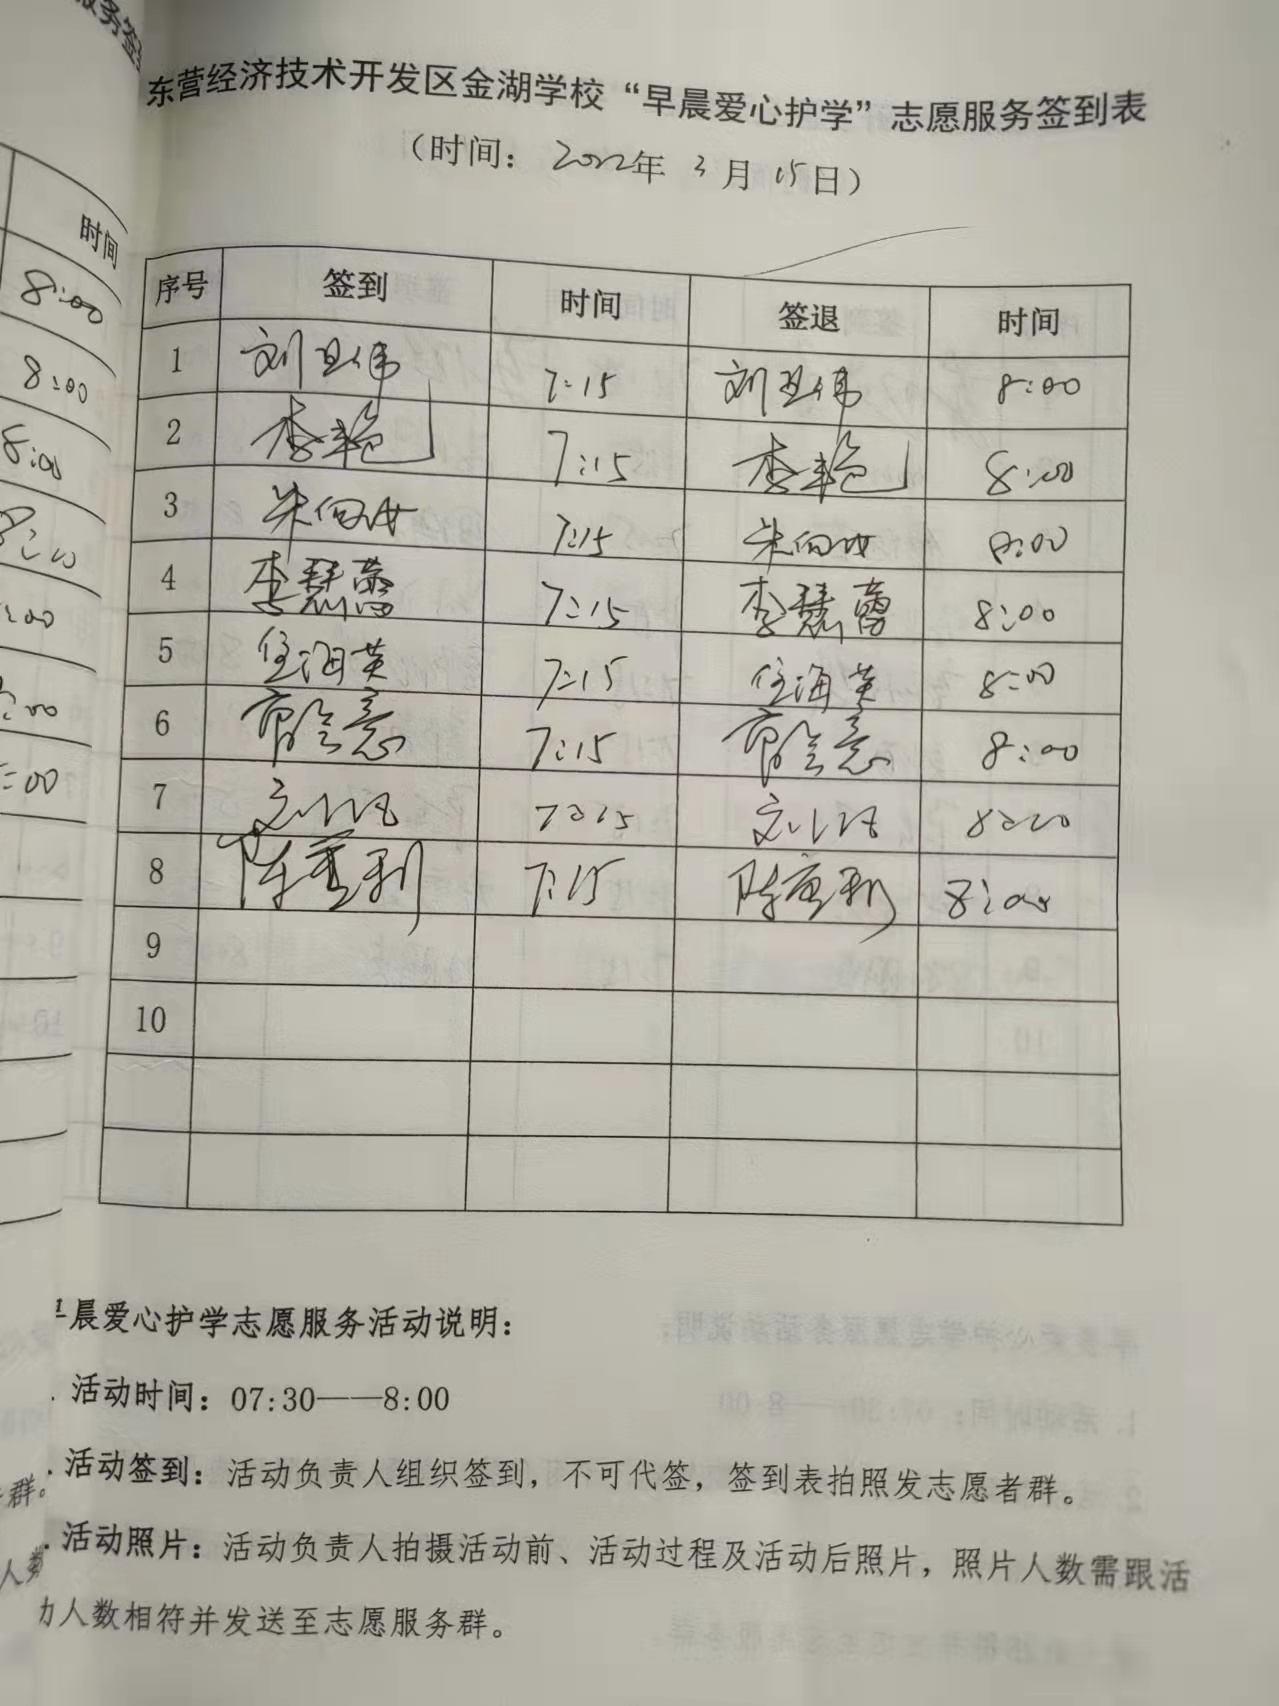 东营经济技术开发区金湖学校“早晨爱心护学”志愿服务签到表
（时间：2022年 3月 15日）
序号 签到 时间 签退 时间
1 刘卫伟 7:15 刘卫伟 8:00
2 李艳 7:15 李艳 8:00
3 朱向女 7:15 朱向女 8:00
4 李慧蕾 7:15 李慧蕾 8:00
5 任海英 7:15 任海英 8:00
6 7:15 8:00
7 7:15 8:00
8 陈 利 7:15 陈 利 8:00
9
10
早晨爱心护学志愿服务活动说明：
. 活动时间：07:30——8:00
. 活动签到：活动负责人组织签到，不可代签，签到表拍照发志愿者群。
. 活动照片：活动负责人拍摄活动前、活动过程及活动后照片，照片人数需跟活
动人数相符并发送至志愿服务群。
时间
8:00
8:00
8:00
8:00
:00
:00
:00
群。
人数